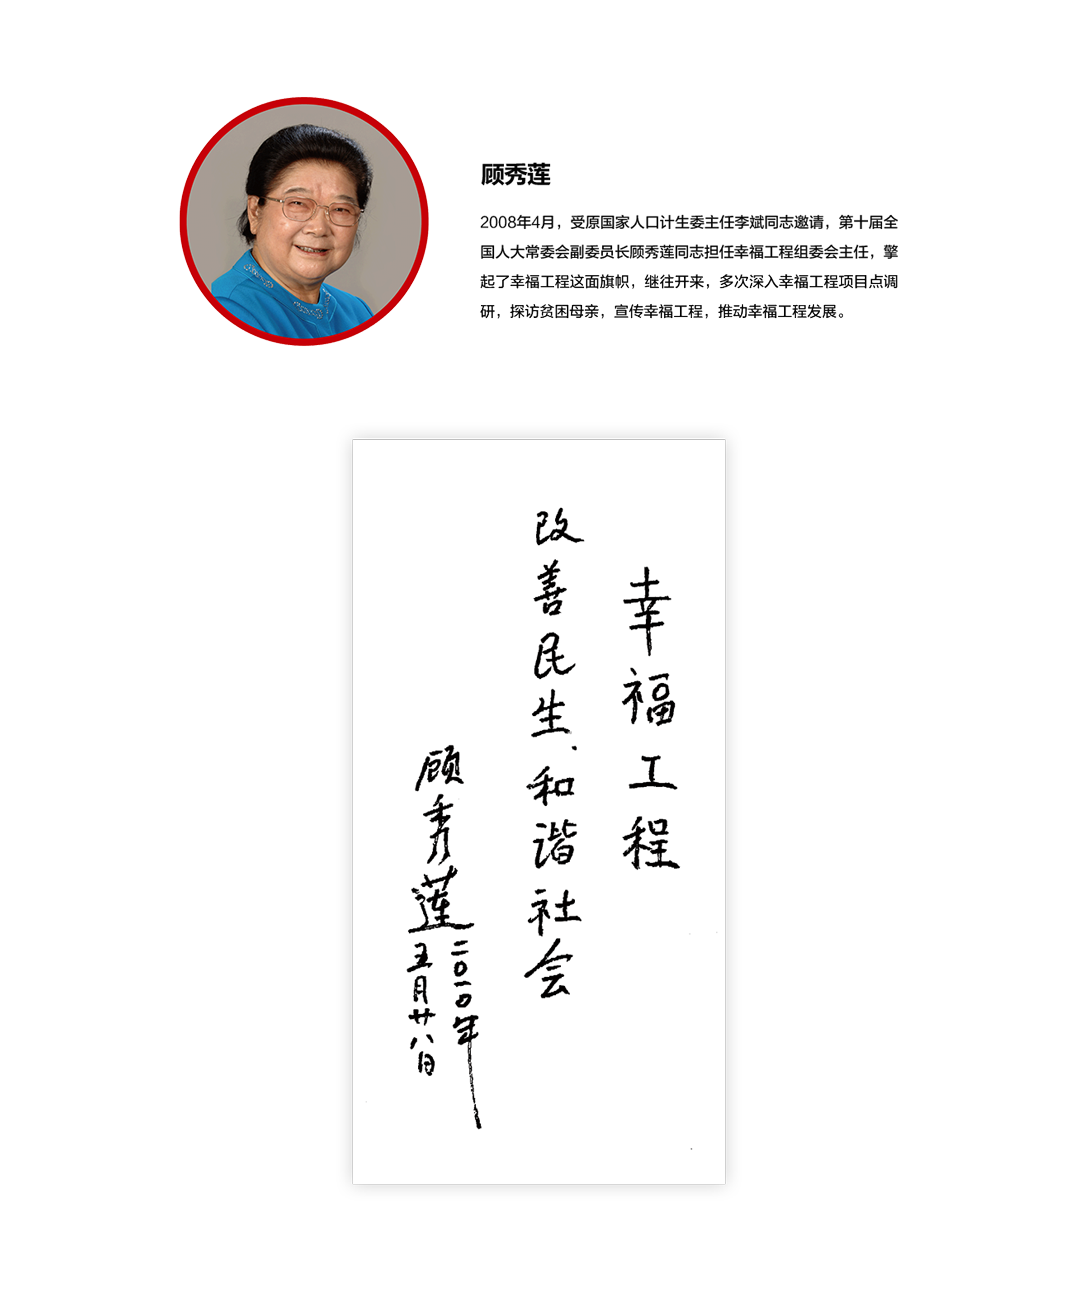 顾秀莲
2008年4月，受原国家人口计生委主任李斌同志邀请，第十届全
国人大常委会副委员长顾秀莲同志担任幸福工程组委会主任，擎
起了幸福工程这面旗帜，继往开来，多次深入幸福工程项目点调
研，探访贫困母亲，宣传幸福工程，推动幸福工程发展。
幸福工程
改善民生、和谐社会
顾秀莲
二〇一〇年
五月廿八日